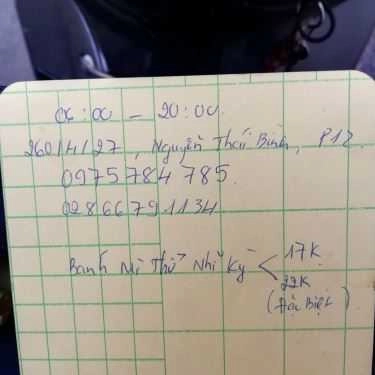 06:00 - 20:00.
260/4/27, Nguyễn Thái Bình, P12.
0975 784 785.
028 66791134.
Bánh Mì Thổ Nhĩ Kỳ < 17K
22K
(Đặc Biệt)